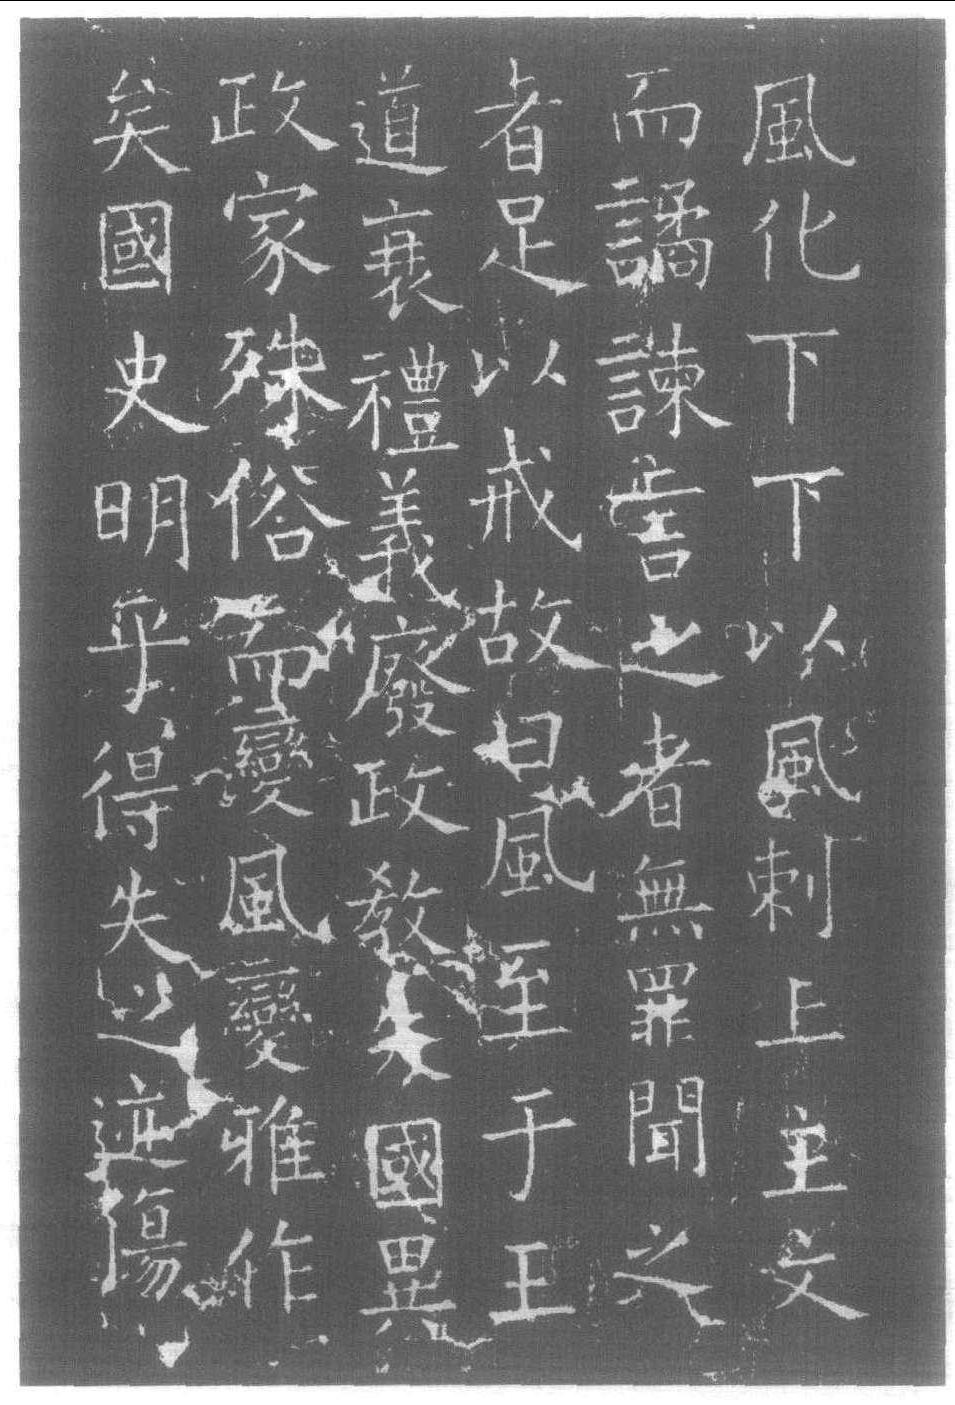 風化下下以風刺上主文
而譎諫言之者無罪聞之
者足以戒故曰風至于王
道衰禮義廢政教失國異
政家殊俗而變風變雅作
矣國史明乎得失之迹傷